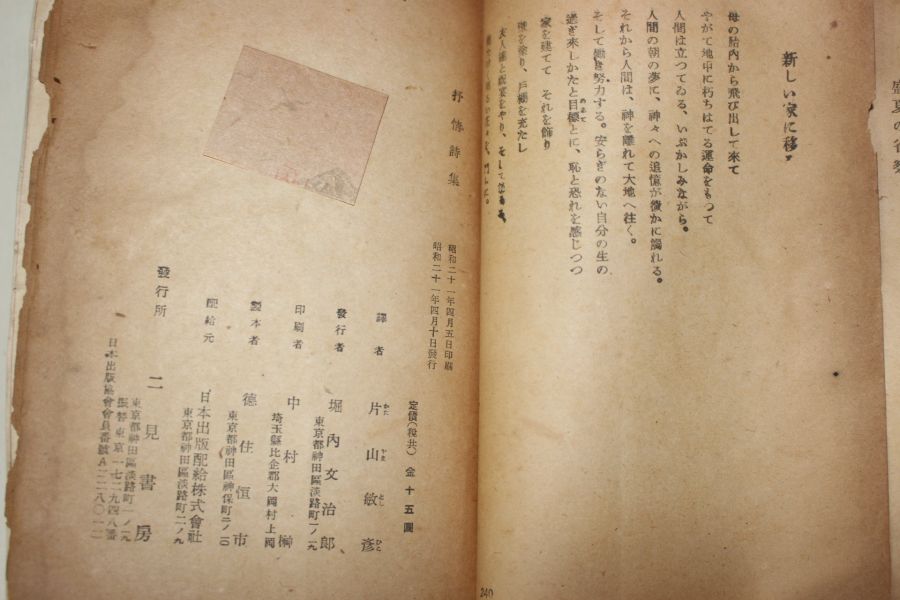 新しい家に移る
母の胎内から飛び出して來て
やがて地中に朽ちはてる運命をもつて
人間は立つてゐる、いぶかしみながら。
人間の朝の夢に、神々への追憶が微かに觸れる。
それから人間は、神を離れて大地へ往く。
そして働き努力する。安らぎのない自分の生の
過ぎ來しかたと目標とに、恥と恐れを感じつつ
めあて
家を建てて それを飾り
壁を塗り、戸棚を充たし
友人達と祝宴をやり、そして
240
抒情詩集
昭和二十一年四月五日印刷
昭和二十一年四月十日發行
定價(税共) 金十五圓
譯者 片山敏彦
かた やま とし ひこ
發行者 堀内文治郎
東京都神田區淡路町一ノ一九
印刷者 中村榊
埼玉縣比企郡大岡村上岡
製本者 德住恒市
東京都神田區神保町二ノ一〇
配給元 日本出版配給株式會社
東京都神田區淡路町二ノ九
發行所 二見書房
東京都神田區淡路町一ノ一九
振替東京一七二九四八番
日本出版協會會員番號A二二八〇一二